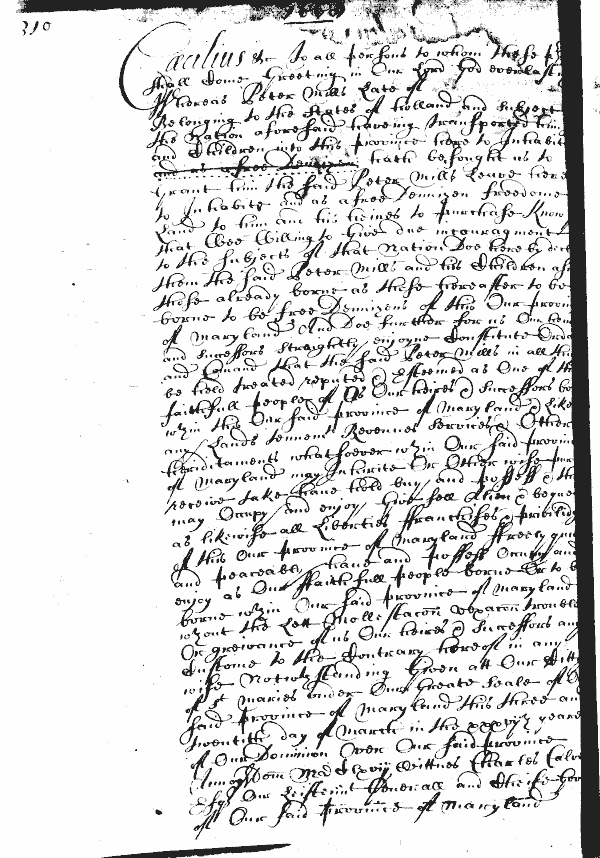 310
Cæcilius &c To all persons to whom these p
shall Come Greeting in Our Lord God everlast
Whereas Peter Mills Late of
Belonging to the States of Holland and Subject
the Nation aforesaid haveing transported him
and Children into this province here to Inhabite
and as a free Denizen hath besought us to
Grant him the said Peter Mills Leave here
to Inhabite and as a free Dennizen freedome
Land to him and his heires to purchase Know
that Wee Willing to Give due incouragment
to the Subjects of that Nation Doe hereby decl
them the said Peter Mills and his Children as
those already borne as those hereafter to be
borne to be free Dennizens of this Our provin
of Maryland And Doe further for us Our heir
and Successors Streightly enjoyne Constitute Orda
and Comand that the said Peter Mills in all thi
be held treated reputed & Esteemed as One of th
faithfull people of Us Our heires & Successors bo
wthin this Our said province of Maryland & Like
any Lands tenemts Revenues Services & Other
hereditaments whatsoever wthin Our said Provin
of Maryland may Inherite Or Other wise pur
receive take have hold buy and possess & the
may Occupy and enjoy Give sell Alien & beque
as likewise all Liberties ffranchises & priviledg
of this Our province of Maryland ffreely qui
and peaceably have and possess Occupy and
enjoy as Our ffaithfull people borne Or to b
borne wthin Our said province of Maryland
wthout the Lett Mollestacon vexacon trouble
Or greivance of us Our heires & Successors any
Custome to the Contrary hereof in any
wise Notwthstanding Given att Our Citty
of St Maries under Our Greate Seale of O
said Province of Maryland this three and
twentith day of March in the xxxvjth yeare
of Our Dominion Over Our said province
Annoq Dom Wittnes Charles Calve
Esqr Our Leistennt Generall and Cheife Gov
of Our said Province of Maryland